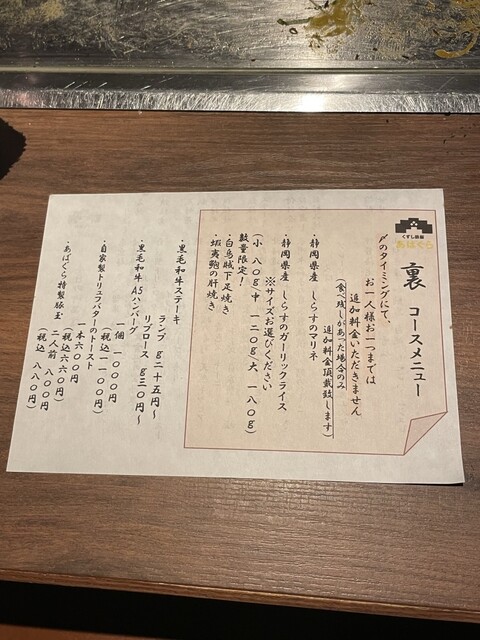 くずし鉄板
あばぐら
裏 コースメニュー
〆のタイミングにて、
お一人様お一つまでは
追加料金いただきません
(食べ残しがあった場合のみ
追加料金頂戴致します)
・静岡県産 しらすのマリネ
・静岡県産 しらすのガーリックライス
※サイズお選びください
(小 八〇g/中 一二〇g/大 一八〇g)
数量限定!
・白烏賊下足焼き
・蝦夷鮑の肝焼き
・黒毛和牛ステーキ
ランプ g二十五円〜
リブロース g三〇円〜
・黒毛和牛A5ハンバーグ
一個 一〇〇〇円
(税込 一一〇〇円)
・自家製トリュフバターのトースト
一本六〇〇円
(税込六六〇円)
・あばぐら特製豚玉
二人前 八〇〇円
(税込 八八〇円)